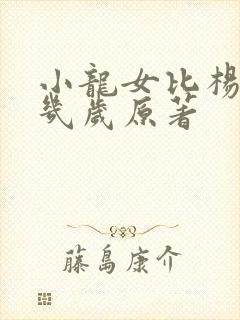 小龍女比楊
幾歲原著
藤島康介